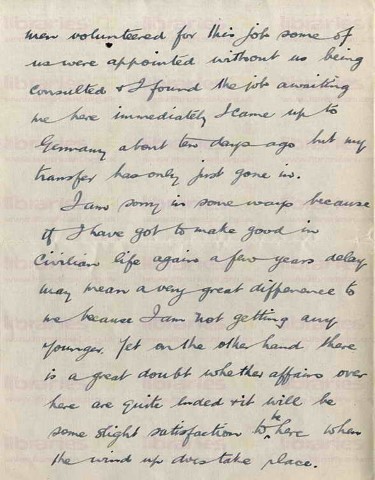 men volunteered for this job some of
us were appointed without us being
consulted & I found the job awaiting
me here immediately I came up to
Germany about ten days ago but my
transfer has only just gone in.
I am sorry in some ways because
if I have got to make good in
civilian life again a few years delay
may mean a very great difference to
me because I am not getting any
younger. Yet on the other hand there
is a great doubt whether affairs over
here are quite ended & it will be
some slight satisfaction to be here when
the wind up does take place.